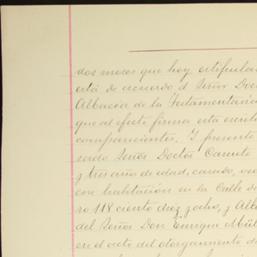 dos meses que hoy estipulan
está de acuerdo el Señor Doc
Albacea de la Testamentaría
que al efecto firma esta escrit
comparecientes. Y presente
Señor Doctor Canuto
y tres años de edad, casado, vec
con habitación en la Calle
ro 118 ciento diez y ocho, y Alb
del Señor Don Enrique Mül
en el acto del otorgamiento d